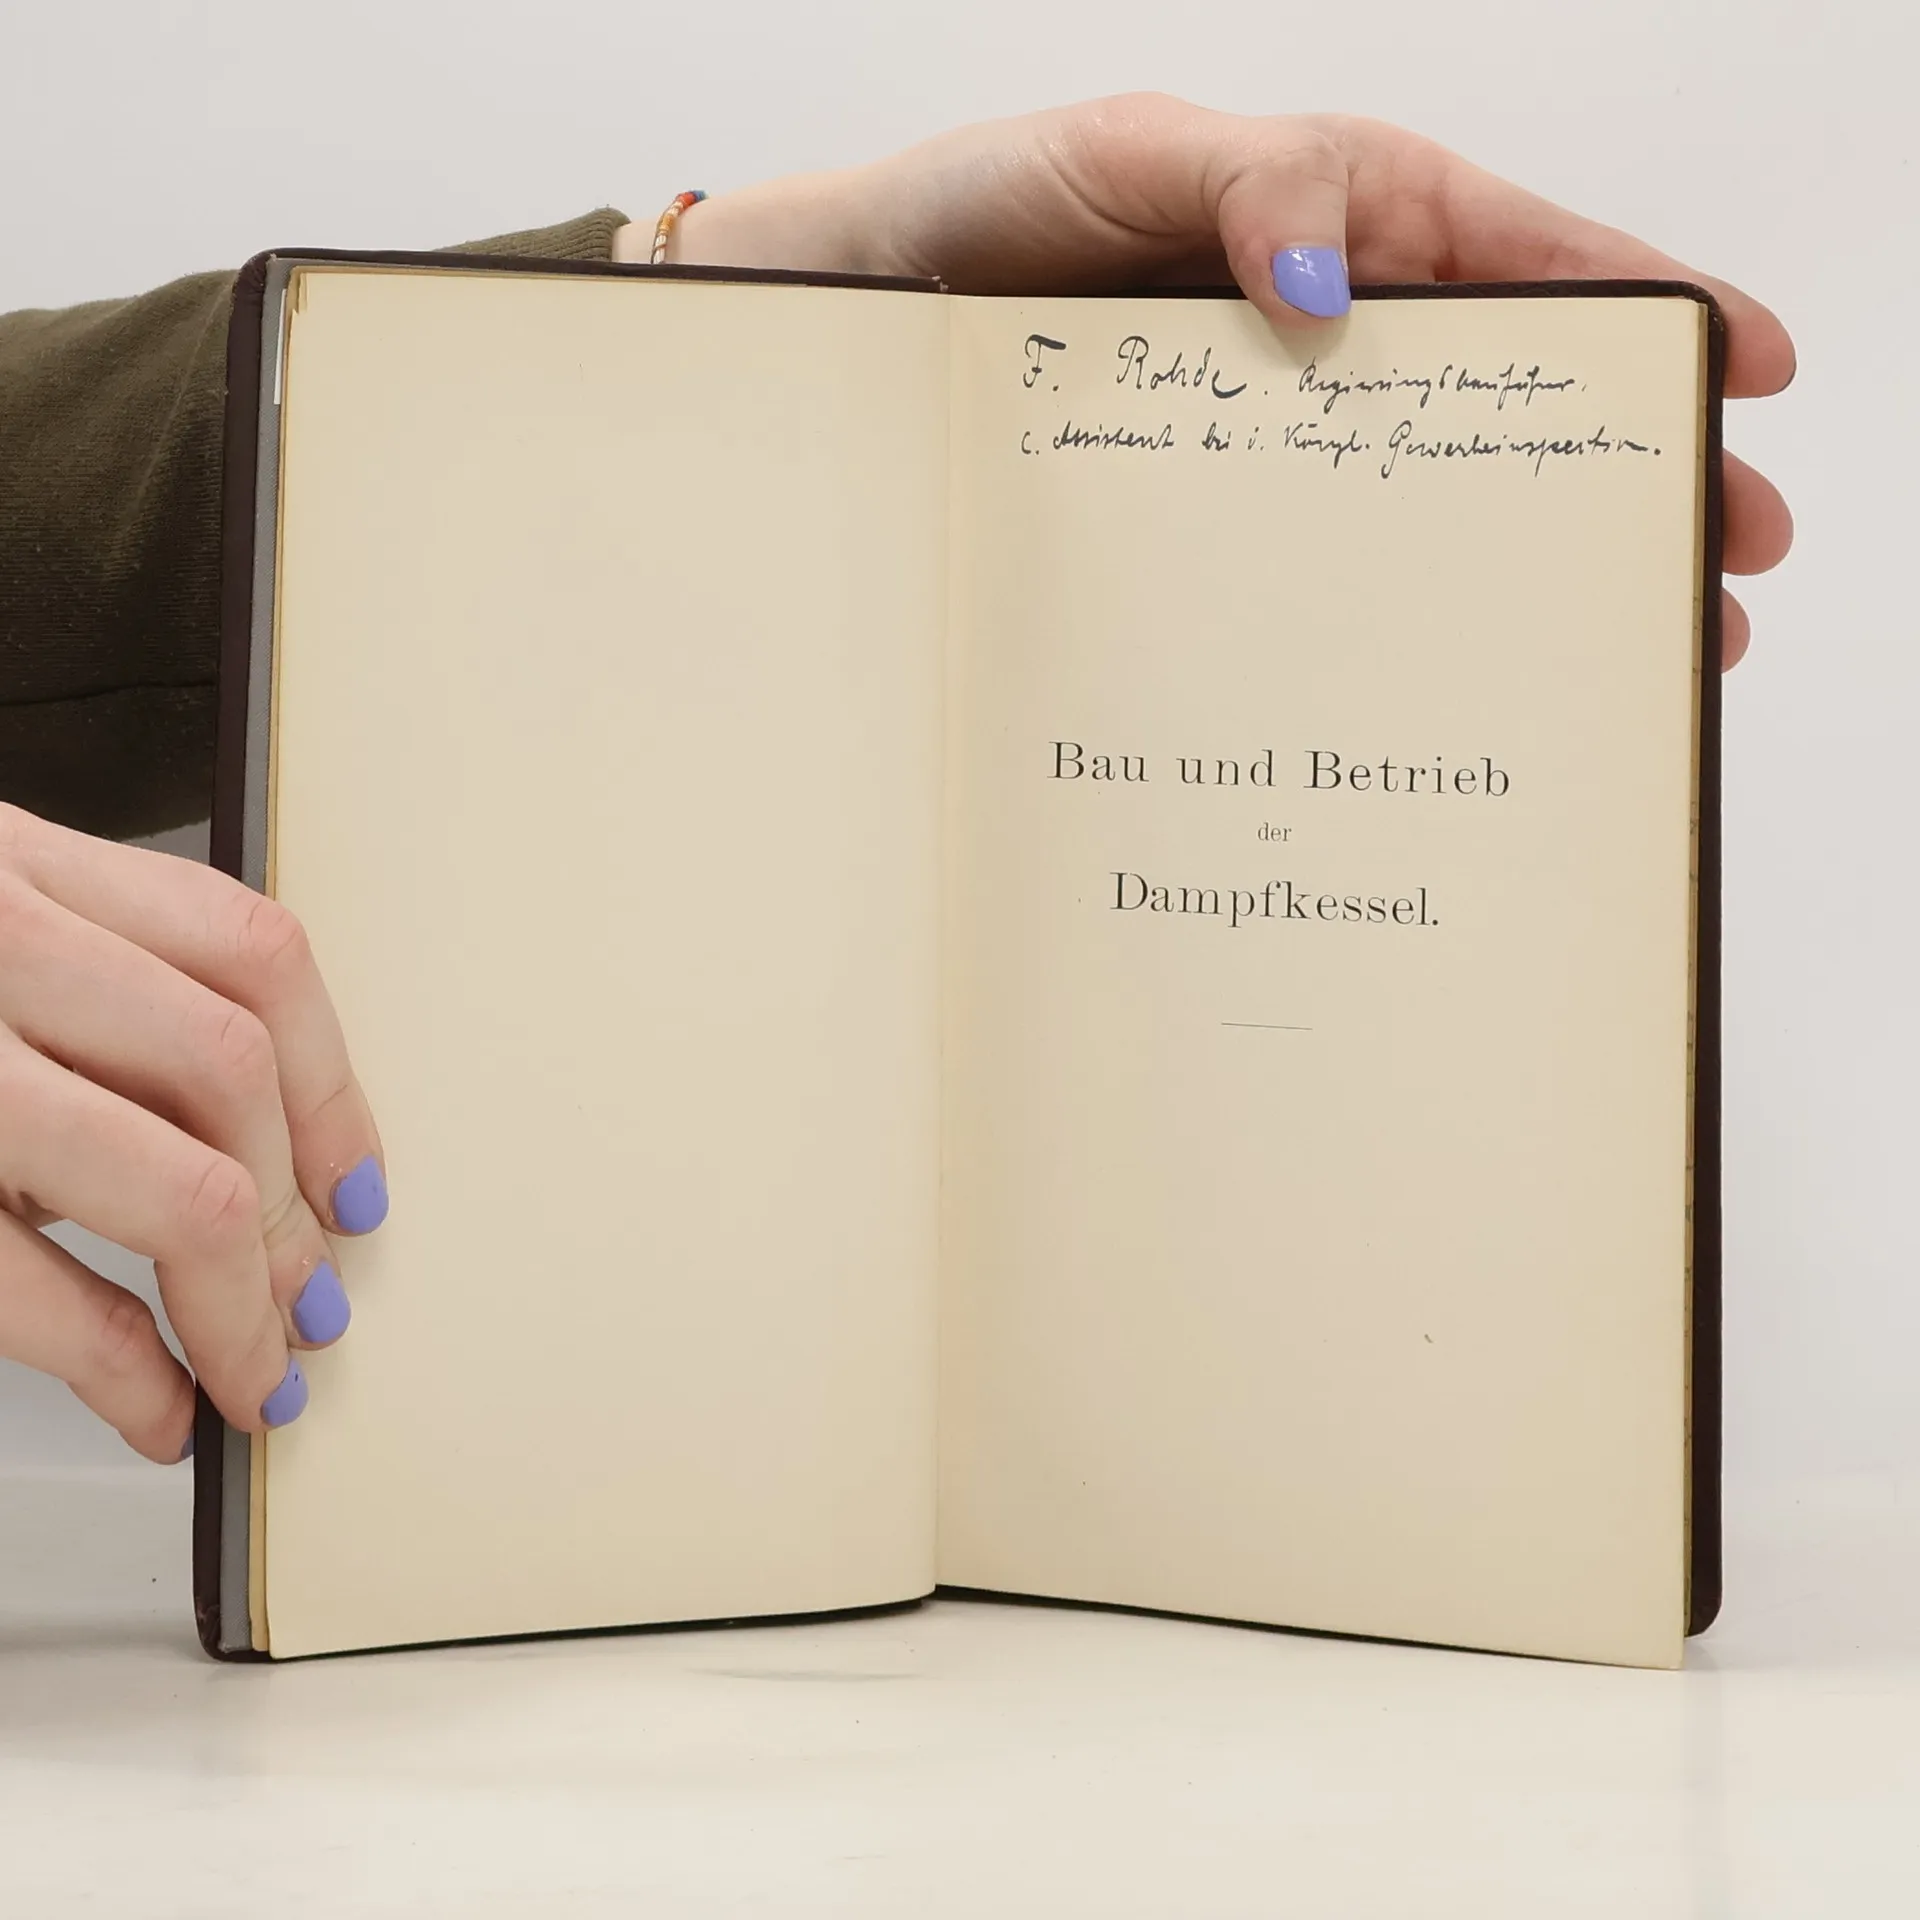 F. Rohde. Regierungsbauführer.
c. Assistent bei d. Königl. Gewerbeinspektion.
Bau und Betrieb
der
Dampfkessel.